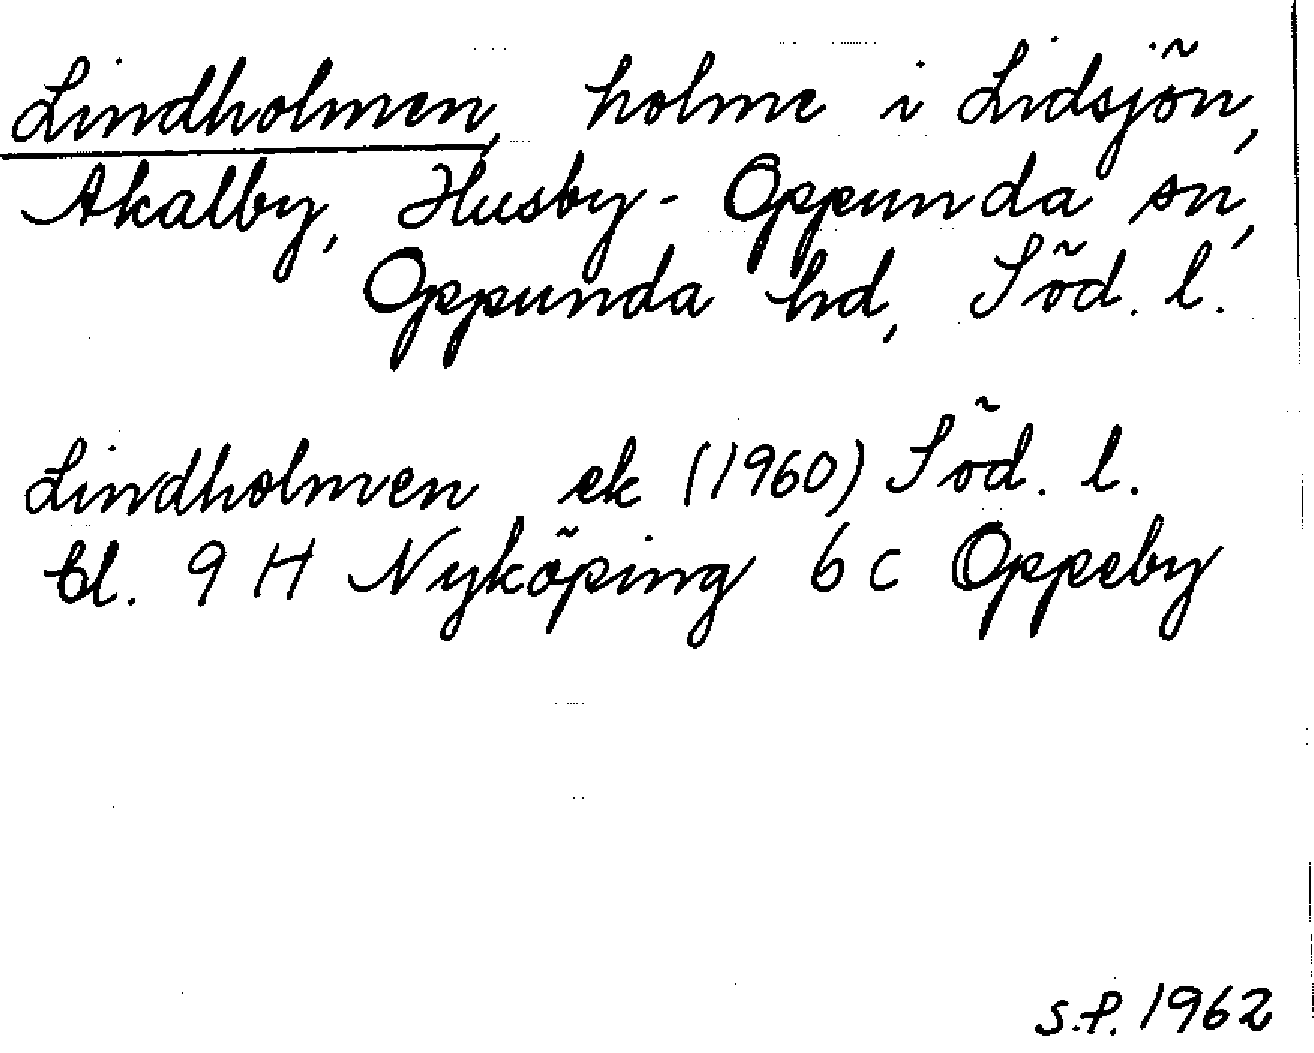 Lindholmen, holme i Lidsjön,
Akalby, Husby-Oppunda sn,
Oppunda hd, Söd. l.
Lindholmen ek (1960) Söd. l.
bl. 9 H Nyköping 6 c Oppeby
S.P. 1962